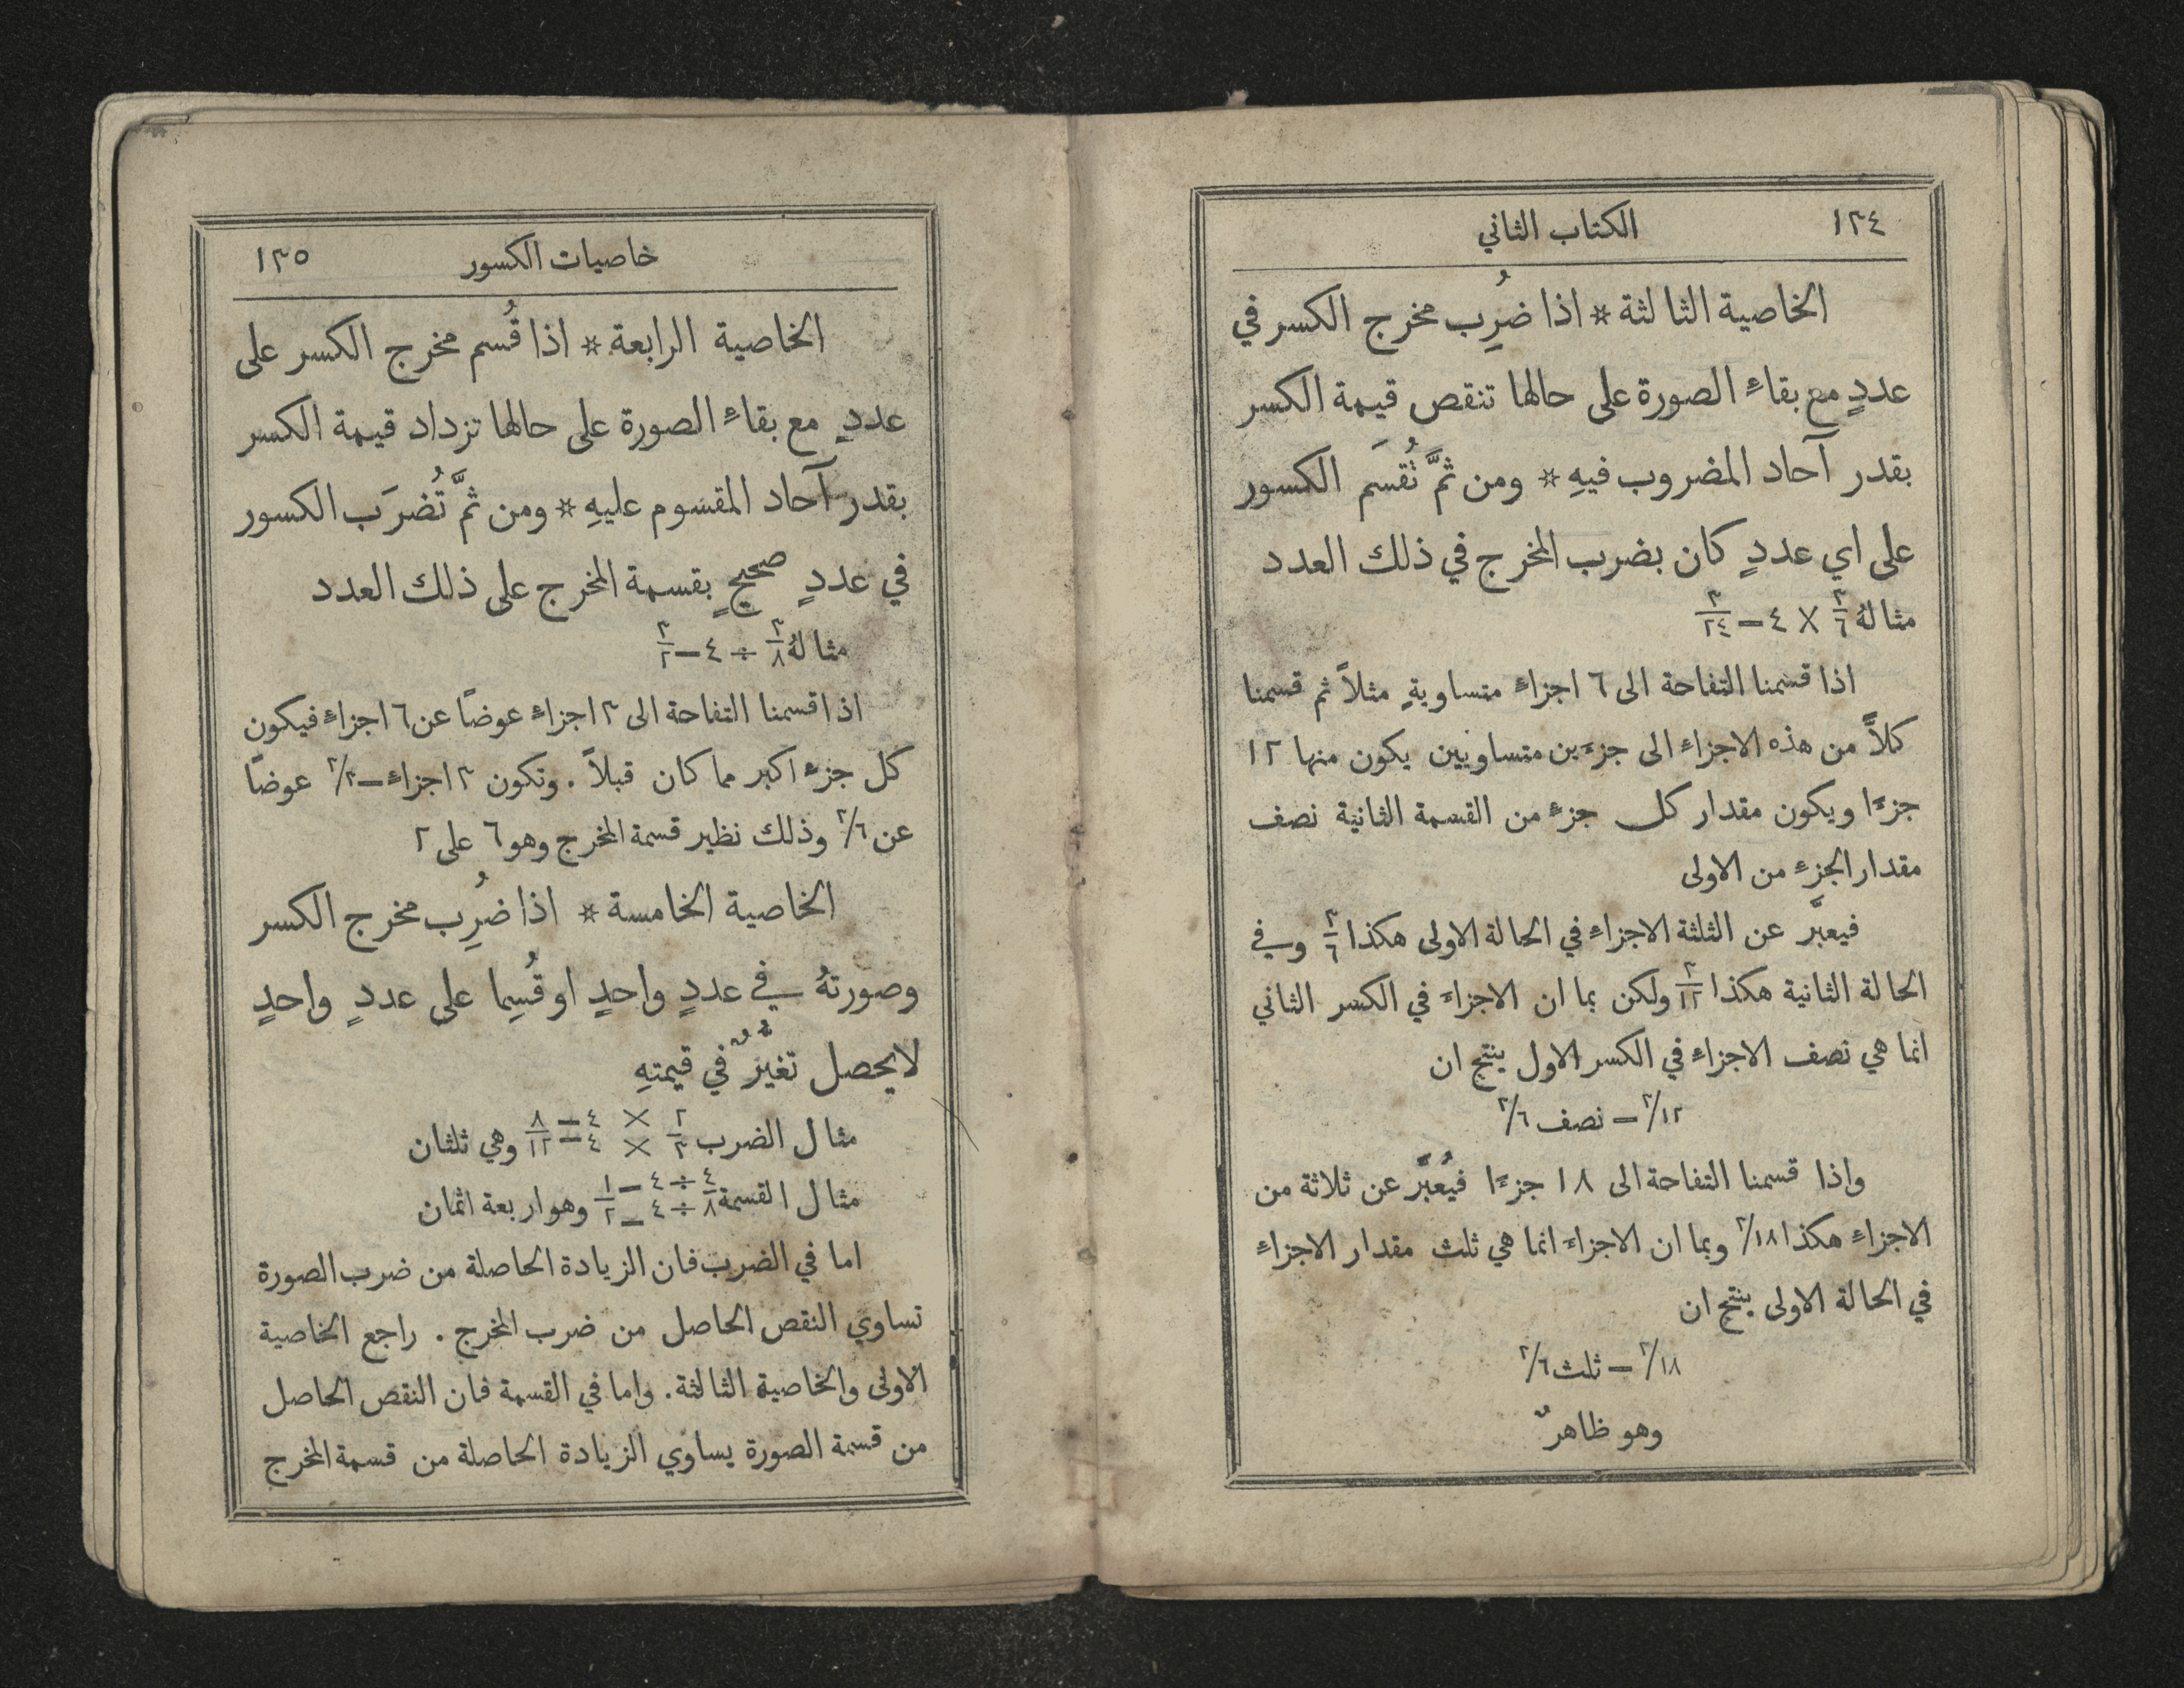 ١٣٤ الكتاب الثاني
الخاصية الثالثة * اذا ضُرِب مخرج الكسر في
عددٍ مع بقاءِ الصورة على حالها تنقص قيمة الكسر
بقدر آحاد المضروب فيهِ * ومن ثمَّ تُقسَم الكسور
على اي عددٍ كان بضرب المخرج في ذلك العدد
مثالهُ ٣/٦ × ٤ — ٣/٢٤
اذا قسمنا التفاحة الى ٦ اجزاءٍ متساويةٍ مثلاً ثم قسمنا
كلاًّ من هذه الاجزاءِ الى جزءَين متساويين يكون منها ١٢
جزءًا ويكون مقدار كل جزءٍ من القسمة الثانية نصف
مقدار الجزءِ من الاولى
فيعبَّر عن الثلثة الاجزاءِ في الحالة الاولى هكذا ٣/٦ وفي
الحالة الثانية هكذا ٣/١٢ ولكن بما ان الاجزاءَ في الكسر الثاني
انما هي نصف الاجزاءِ في الكسر الاول ينتج ان
٣/١٢ — نصف ٣/٦
واذا قسمنا التفاحة الى ١٨ جزءًا فيُعبَّر عن ثلاثة من
الاجزاءِ هكذا ٣/١٨ وبما ان الاجزاءَ انما هي ثلث مقدار الاجزاءِ
في الحالة الاولى ينتج ان
٣/١٨ — ثلث ٣/٦
وهو ظاهرٌ
خاصيات الكسور ١٣٥
الخاصية الرابعة * اذا قُسم مخرج الكسر على
عددٍ مع بقاءِ الصورة على حالها تزداد قيمة الكسر
بقدر آحاد المقسوم عليهِ * ومن ثمَّ تُضرَب الكسور
في عددٍ صحيحٍ بقسمة المخرج على ذلك العدد
مثالهُ ٣/٨ ÷ ٤ — ٣/٢
اذا قسمنا التفاحة الى ٣ اجزاءٍ عوضًا عن ٦ اجزاءٍ فيكون
كل جزءٍ اكبر مما كان قبلاً . وتكون ٣ اجزاءٍ — ٣/٣ عوضًا
عن ٣/٦ وذلك نظير قسمة المخرج وهو ٦ على ٢
الخاصية الخامسة * اذا ضُرِب مخرج الكسر
وصورتهُ في عددٍ واحدٍ او قُسِما على عددٍ واحدٍ
لا يحصل تغيُّرٌ في قيمتهِ
مثال الضرب ٢/٣ × ٤/٤ — ٨/١٢ وهي ثلثان
مثال القسمة ٤/٨ ÷ ٤/٤ — ١/٢ وهو اربعة اثمان
اما في الضرب فان الزيادة الحاصلة من ضرب الصورة
تساوي النقص الحاصل من ضرب المخرج . راجع الخاصية
الاولى والخاصية الثالثة . واما في القسمة فان النقص الحاصل
من قسمة الصورة يساوي الزيادة الحاصلة من قسمة المخرج